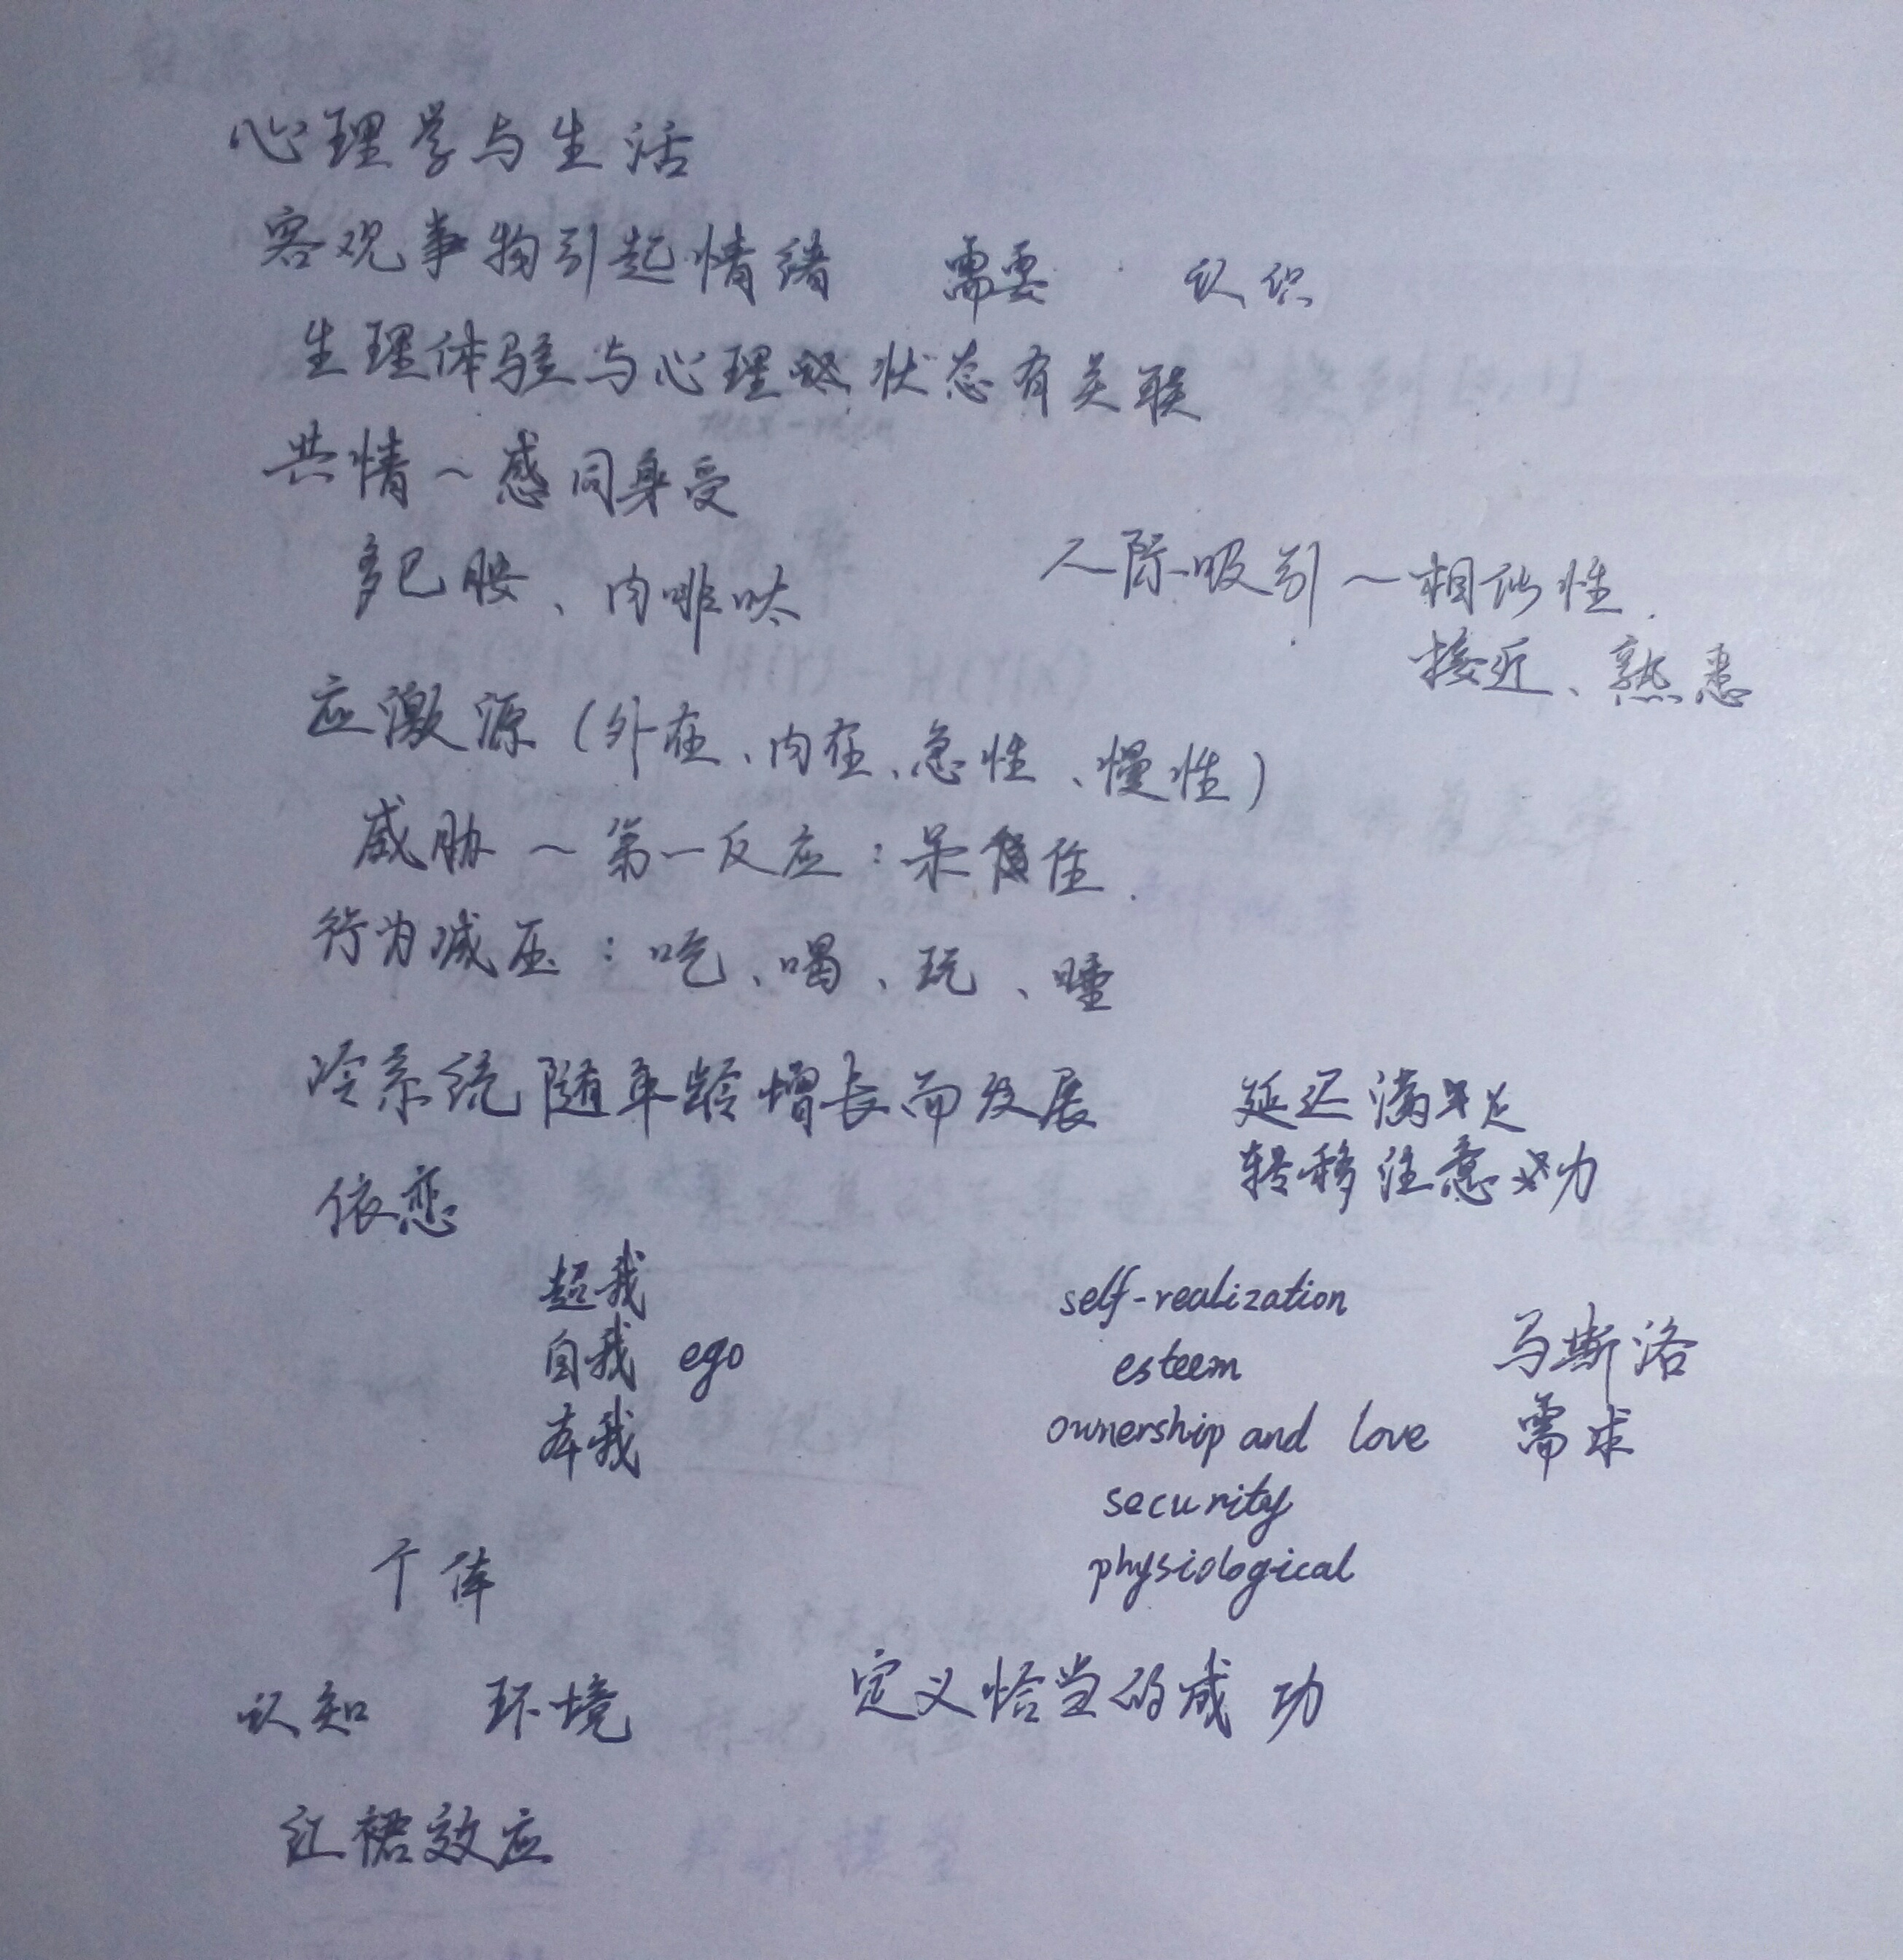 心理学与生活
客观事物引起情绪 需要 认识
生理体验与心理状态有关联
共情~感同身受
多巴胺、内啡呔
人际吸引~相似性
接近、熟悉
应激源(外在、内在、急性、慢性)
威胁~第一反应:呆住
行为减压:吃、喝、玩、睡
冷系统随年龄增长而发展
延迟满足
转移注意力
依恋
超我
自我 ego
本我
self-realization
esteem
ownership and love
security
physiological
马斯洛
需求
个体
认知 环境 定义恰当的成功
红裙效应